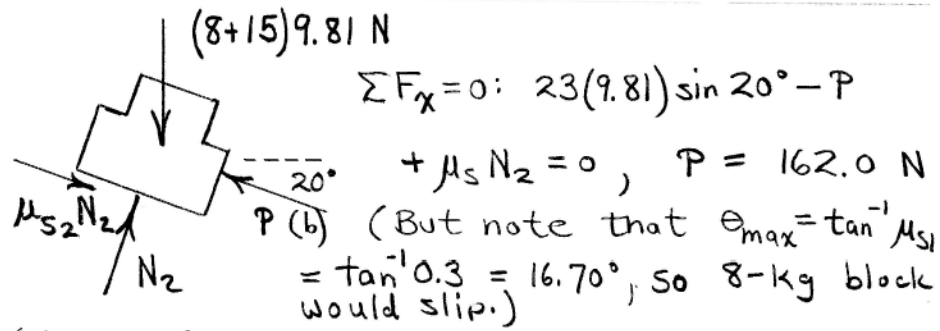 (8+15)9.81 N
ΣFₓ=0: 23(9.81) sin 20° – P
+ μₛ N₂ = 0, P = 162.0 N
20°
μₛ₂N₂
P (b) (But note that θmax = tan⁻¹ μₛ₁
N₂
= tan⁻¹ 0.3 = 16.70°, so 8-kg block
would slip.)